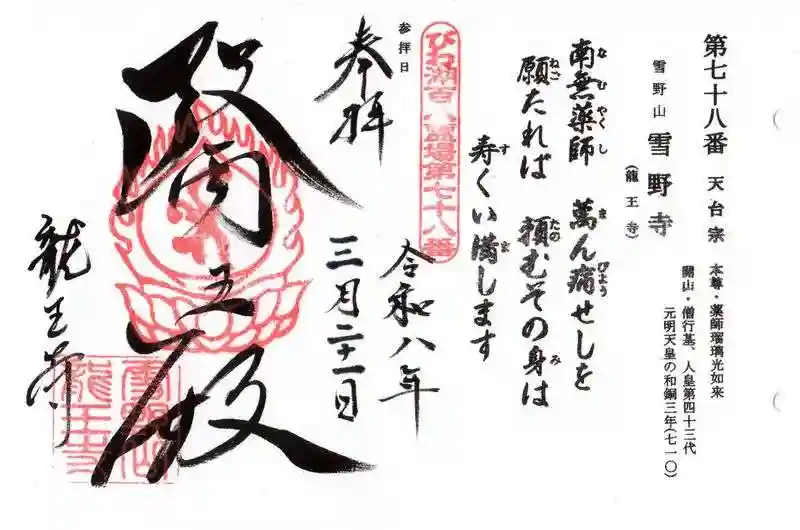 第七十八番 天台宗 本尊・薬師瑠璃光如来
開山・僧行基、人皇第四十三代
元明天皇の和銅三年(七一〇)
雪野山 雪野寺
(龍王寺)
南無薬師 萬ん病せしを
なむやくし まびょう
願たれば 頼むその身は
ねご たの み
寿くい満します
す ま
参拝日
びわ湖百八霊場第七十八番
奉拝
令和八年
三月二十一日
医王殿
龍王寺
雪野山
龍王寺